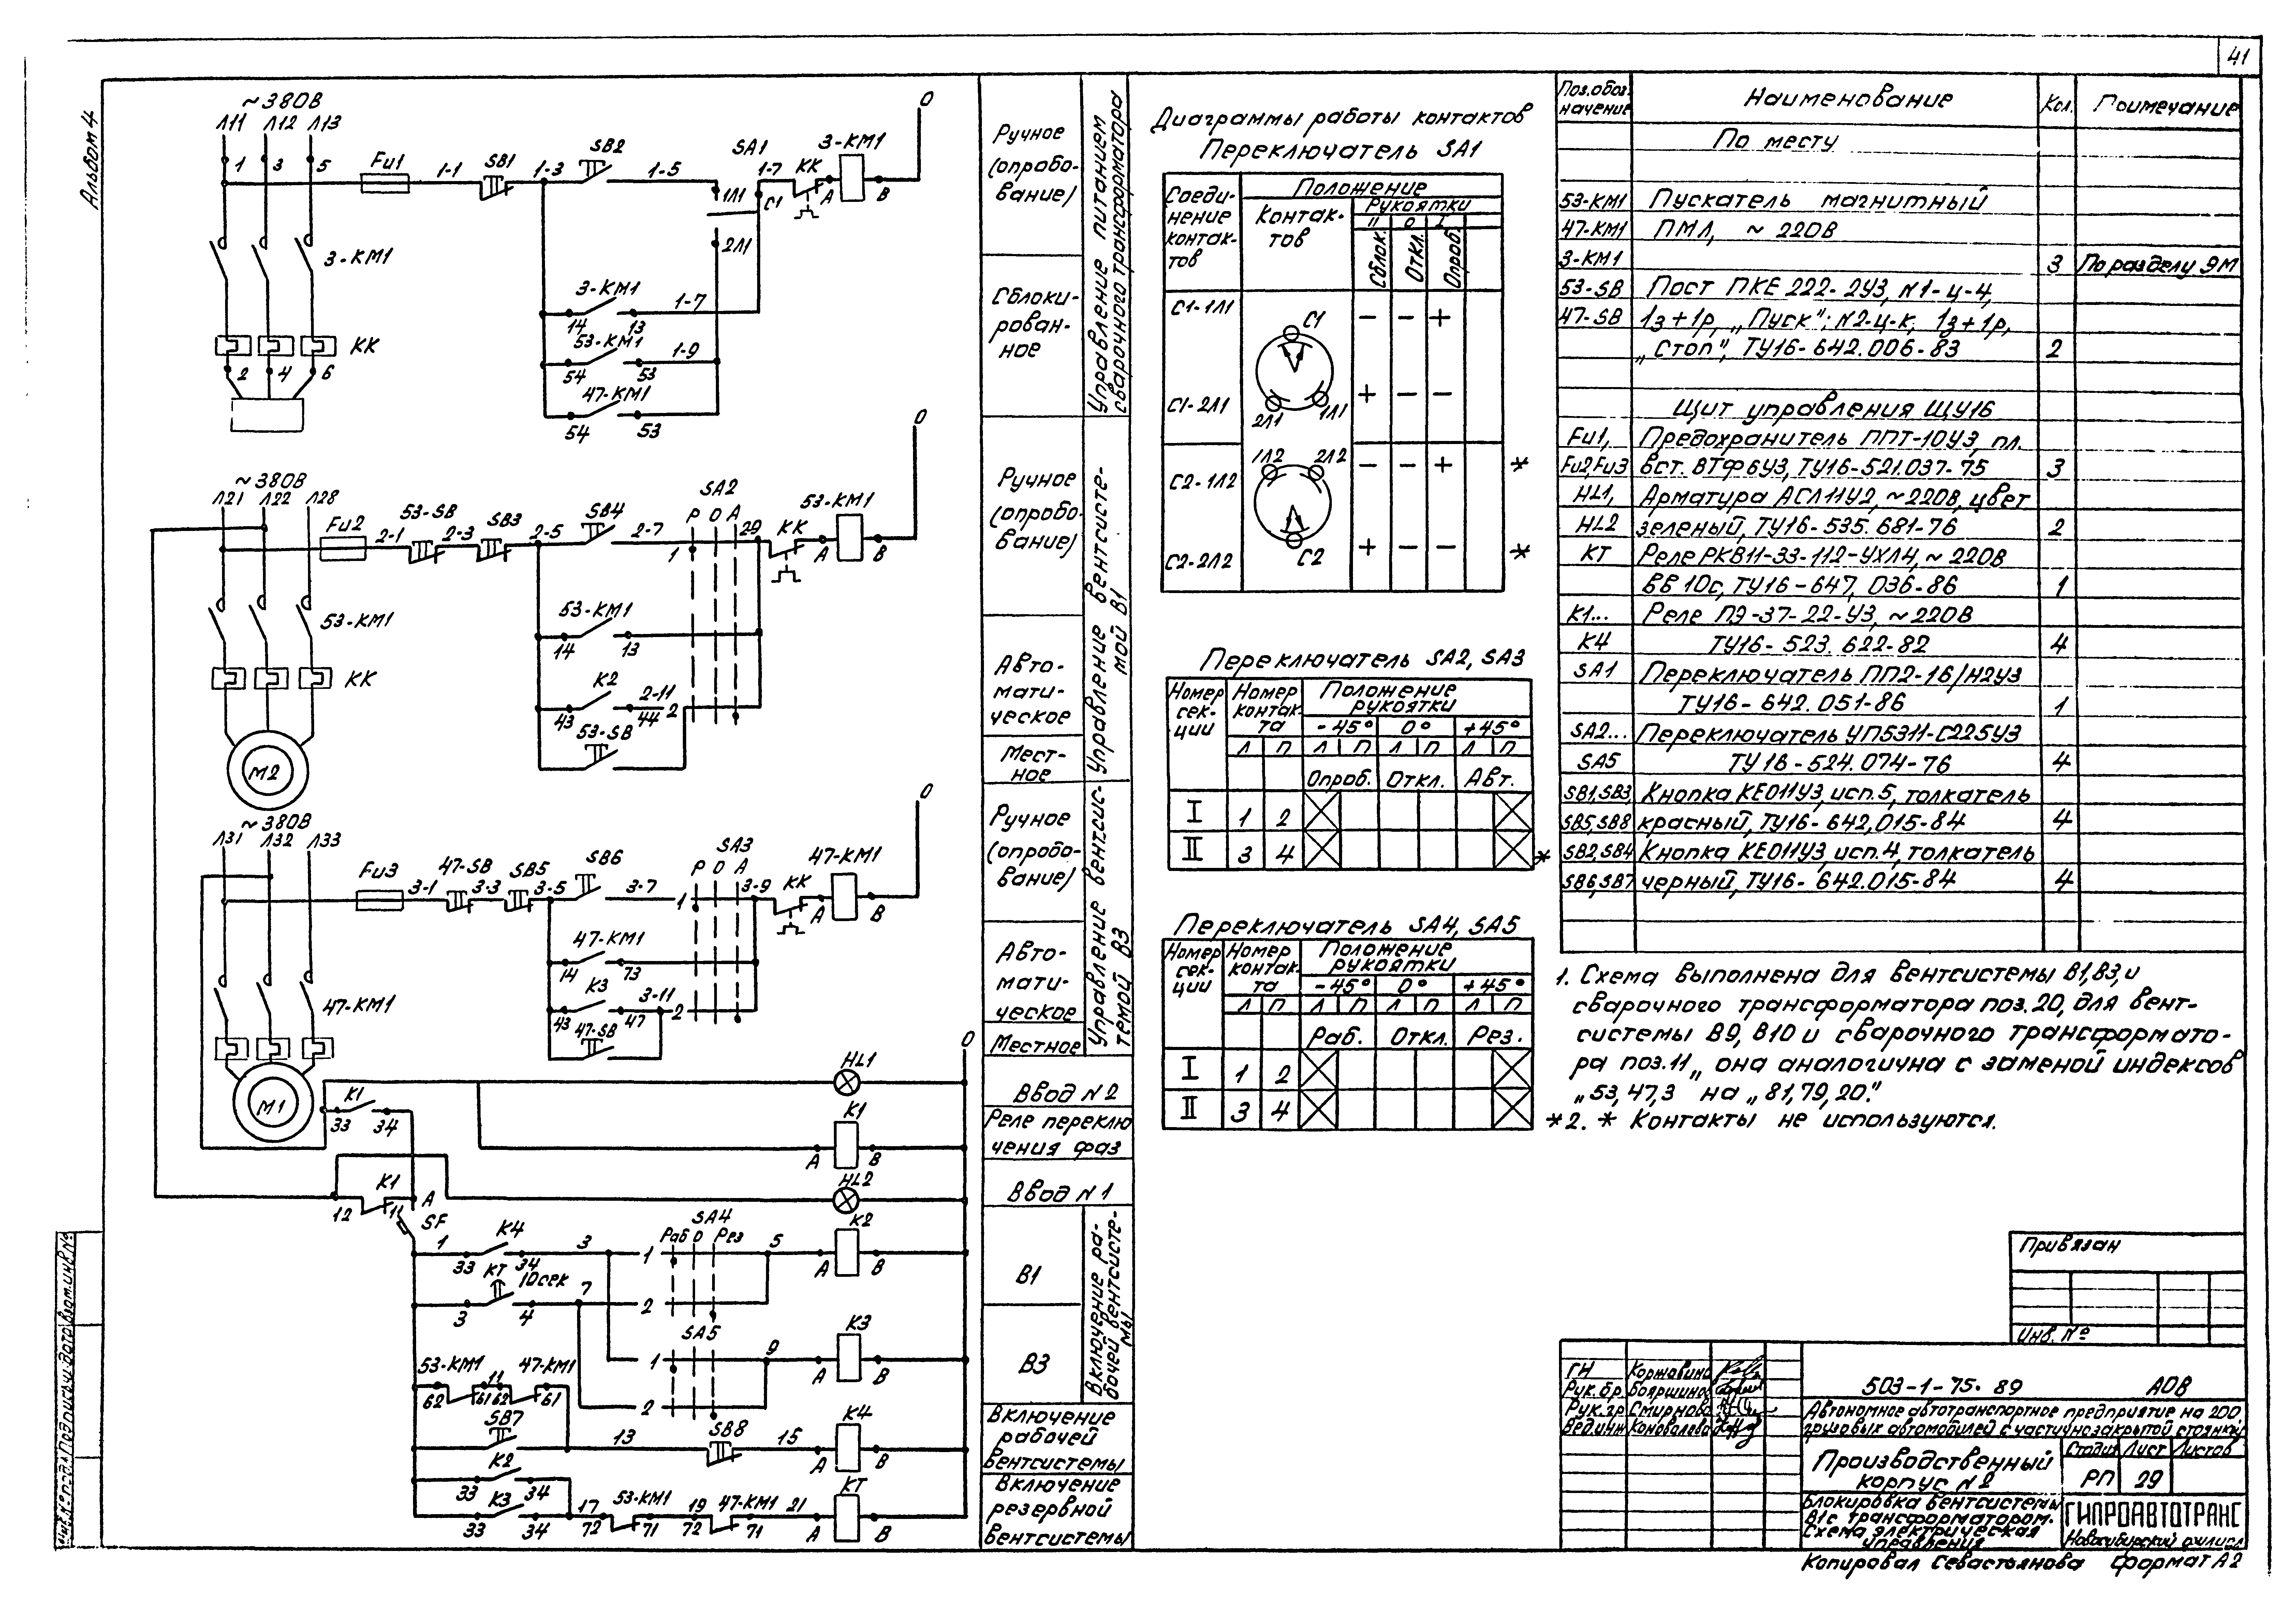 41
Альбом 4
~380В
Л11 Л12 Л13
1 3 5
Fu1
1-1
SB1
1-3
SB2
1-5
SA1
1-7
КК
3-КМ1
А В
0
1Л1
С1
2Л1
3-КМ1
КК
2 4 6
3-КМ1
14 13
1-7
53-КМ1
54 53
1-9
47-КМ1
54 53
~380В
Л21 Л22 Л28
Fu2
2-1
53-SB
2-3
SB3
2-5
SB4
2-7
SA2
Р О А
1
29
КК
53-КМ1
А В
0
53-КМ1
КК
М2
53-КМ1
14 13
К2
43 44
2-11
2
53-SB
~380В
Л31 Л32 Л33
Fu3
3-1
47-SB
3-3
SB5
3-5
SB6
3-7
SA3
Р О А
1
3-9
КК
47-КМ1
А В
0
47-КМ1
М1
47-КМ1
14 73
К3
43 47
3-11
2
47-SB
0
HL1
К1
33 34
К1
А В
HL2
К1
12 11
А
SF
1
К4
33 34
3
SA4
Раб О Рез
1
5
К2
А В
КТ
10сек
3 4
7
2
SA5
1
9
К3
А В
2
53-КМ1
62 61
11
47-КМ1
62 61
SB7
13
SB8
15
К4
А В
К2
33 34
К3
33 34
17
53-КМ1
72 71
19
47-КМ1
72 71
21
КТ
А В
Ручное
(опробо-
вание)
Сблоки-
рован-
ное
Управление питанием
сварочного трансформатора
Ручное
(опробо-
вание)
Авто-
мати-
ческое
Мест-
ное
Управление вентсисте-
мой В1
Ручное
(опробо-
вание)
Авто-
мати-
ческое
Местное
Управление вентсис-
темой В3
Ввод N2
Реле переклю
чения фаз
Ввод N1
В1
В3
Включение ра-
бочей вентсисте-
мы
Включение
рабочей
вентсистемы
Включение
резервной
вентсистемы
Диаграммы работы контактов
Переключатель SA1
Соеди-
нение
контак-
тов
Контак-
тов
Положение
Рукоятки
II О I
Сблок. Откл. Опроб.
С1-1Л1 – – +
С1
2Л1 1Л1
С1-2Л1 + – –
1Л2 2Л2
С2-1Л2 – – + *
С2
С2-2Л2 + – – *
Переключатель SA2, SA3
Номер
сек-
ции
Номер
контак-
та
Положение
рукоятки
-45° 0° +45°
Л П Л П Л П Л П
Опроб. Откл. Авт.
I 1 2
II 3 4 *
Переключатель SA4, SA5
Номер
сек-
ции
Номер
контак-
та
Положение
рукоятки
-45° 0° +45°
Л П Л П Л П Л П
Раб. Откл. Рез.
I 1 2
II 3 4
Поз.обоз-
начение
Наименование Кол. Поимечание
По месту
53-КМ1 Пускатель магнитный
47-КМ1 ПМЛ, ~220В
3-КМ1 3 По разделу ЭМ
53-SB Пост ПКЕ 222-2У3, N1-ц-4,
47-SB 1з+1р, „Пуск"; N2-ц-к, 1з+1р,
„Стоп", ТУ16-642.006-83 2
Щит управления ЩУ16
Fu1, Предохранитель ППТ-10У3, пл.
Fu2,Fu3 вст. ВТФ6У3, ТУ16-521.037-75 3
HL1, Арматура АСЛ11У2, ~220В, цвет
HL2 зеленый, ТУ16-535.681-76 2
КТ Реле РКВ11-33-112-УХЛ4, ~220В
ВВ 10с, ТУ16-647, 036-86 1
К1... Реле ПЭ-37-22-У3, ~220В
К4 ТУ16-523.622-82 4
SA1 Переключатель ПП2-16/Н2У3
ТУ16-642.051-86 1
SA2... Переключатель УП5311-С225У3
SA5 ТУ16-524.074-76 4
SB1,SB3, Кнопка КЕ011У3, исп.5, толкатель
SB5,SB8 красный, ТУ16-642,015-84 4
SB2,SB4 Кнопка КЕ011У3, исп.4, толкатель
SB6,SB7 черный, ТУ16-642.015-84 4
1. Схема выполнена для вентсистемы В1,В3, и
сварочного трансформатора поз.20, для вент-
системы В9, В10 и сварочного трансформато-
ра поз.11 „ она аналогична с заменой индексов
„53, 47, 3 на „81, 79, 20."
*2. * Контакты не используются.
Привязан
Инв. №
ГН Коржавин
Рук.бр. Бояршинов
Рук.гр Смирнова
Вед.инж Коновалова
503-1-75.89 АОВ
Автономное автотранспортное предприятие на 200
грузовых автомобилей с частично закрытой стоянкой
Производственный
корпус N2
Стадия Лист Листов
РП 29
Блокировка вентсистемы
В1 с трансформатором.
Схема электрическая
управления
ГИПРОАВТОТРАНС
Новосибирский филиал
Инв.№ подл. Подпись и дата Взам.инв.№
Копировал Севастьянова формат А2